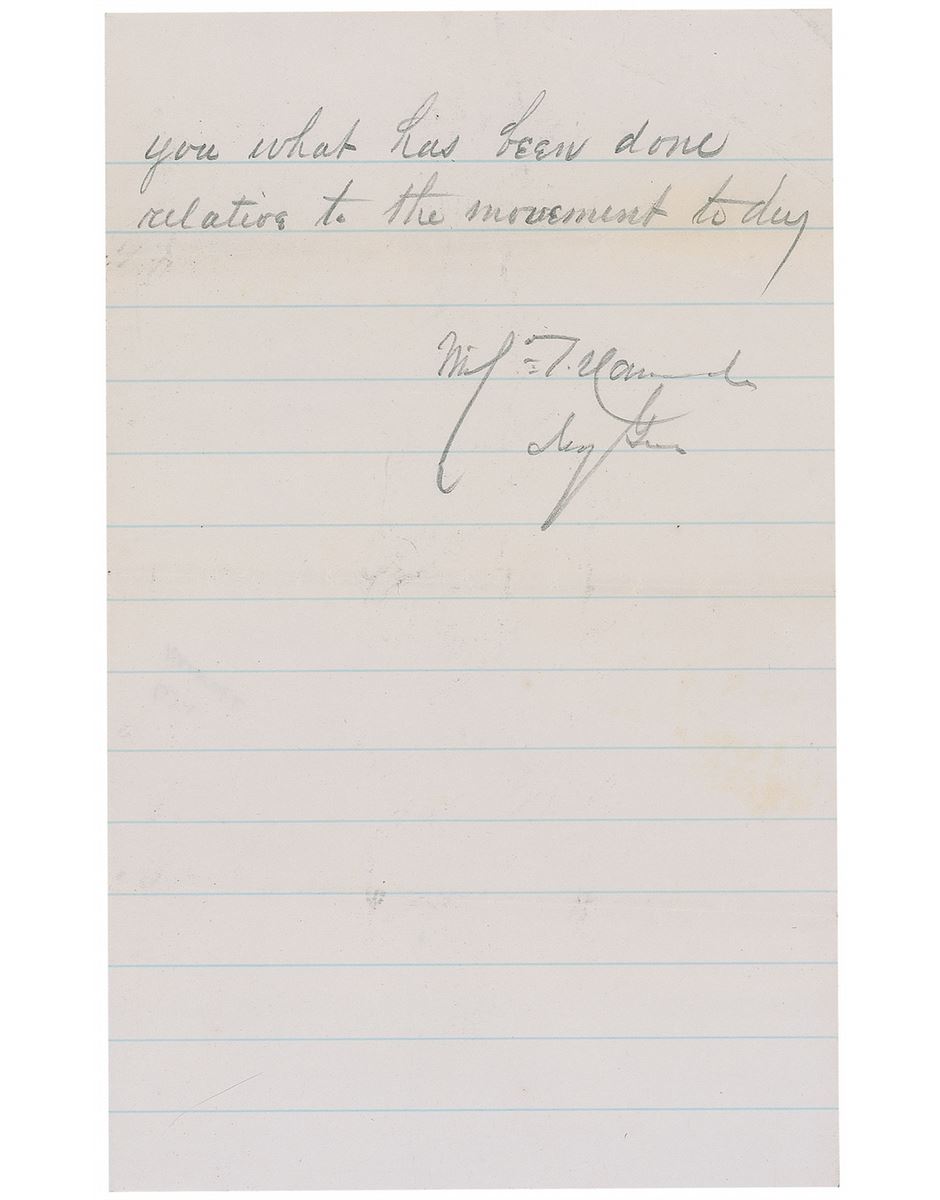 you what has been done
relative to the movement to day
Maj Gen